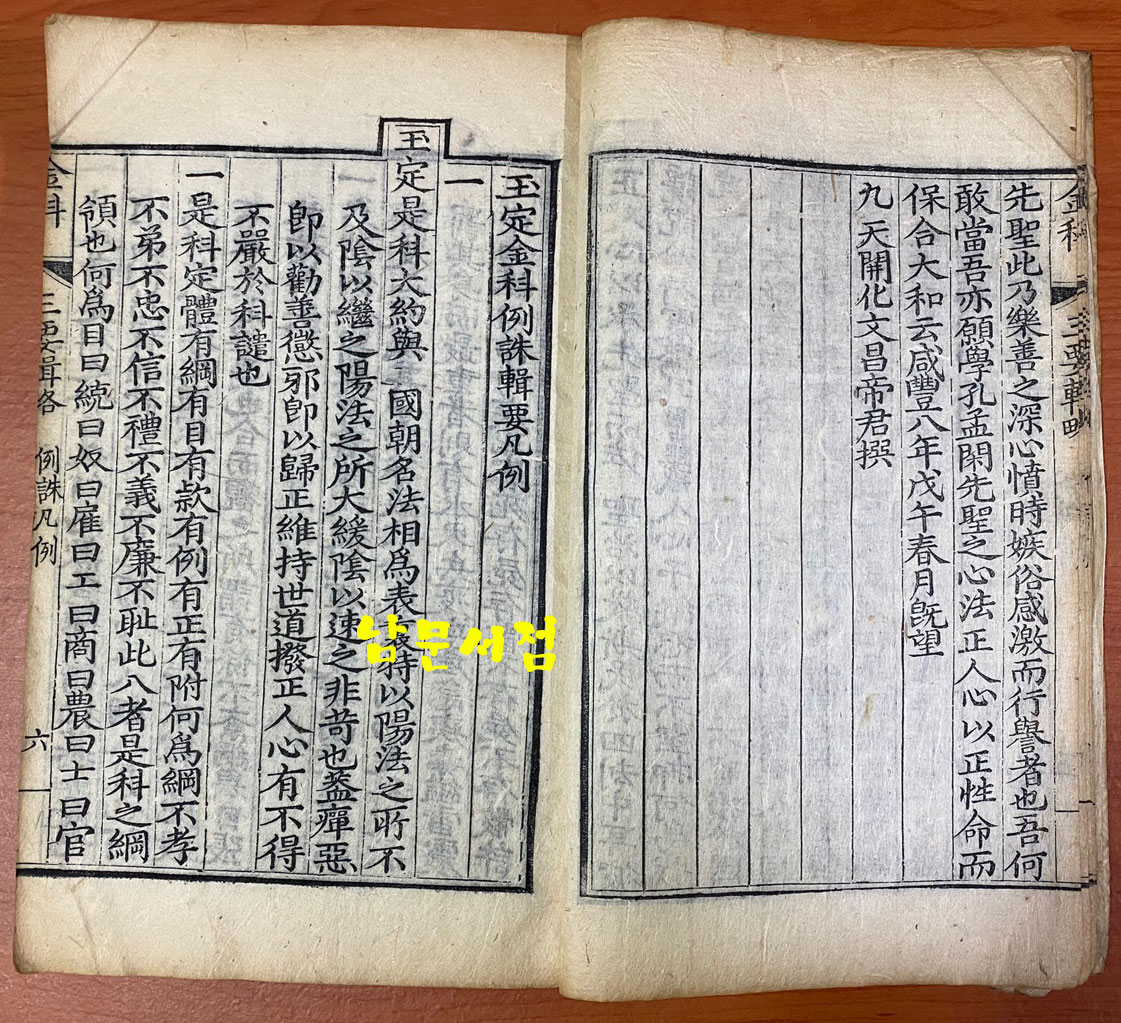 金科
三要輯略
先聖此乃樂善之深心憤時嫉俗感激而行譽者也吾何
敢當吾亦願學孔孟閑先聖之心法正人心以正性命而
保合大和云咸豐八年戊午春月旣望
九天開化文昌帝君撰
玉定金科例誅輯要凡例
一
玉定是科大約與
國朝名法相為表裏特以陽法之所不
及陰以繼之陽法之所大緩陰以速之非苛也蓋癉惡
卽以勸善懲邪卽以歸正維持世道撥正人心有不得
不嚴於科譴也
一是科定體有綱有目有款有例有正有附何爲綱不孝
不弟不忠不信不禮不義不廉不耻此八者是科之綱
領也何爲目曰統曰奴曰雇曰工曰商曰農曰士曰官
金科
三要輯略
例誅凡例
六
남문서점